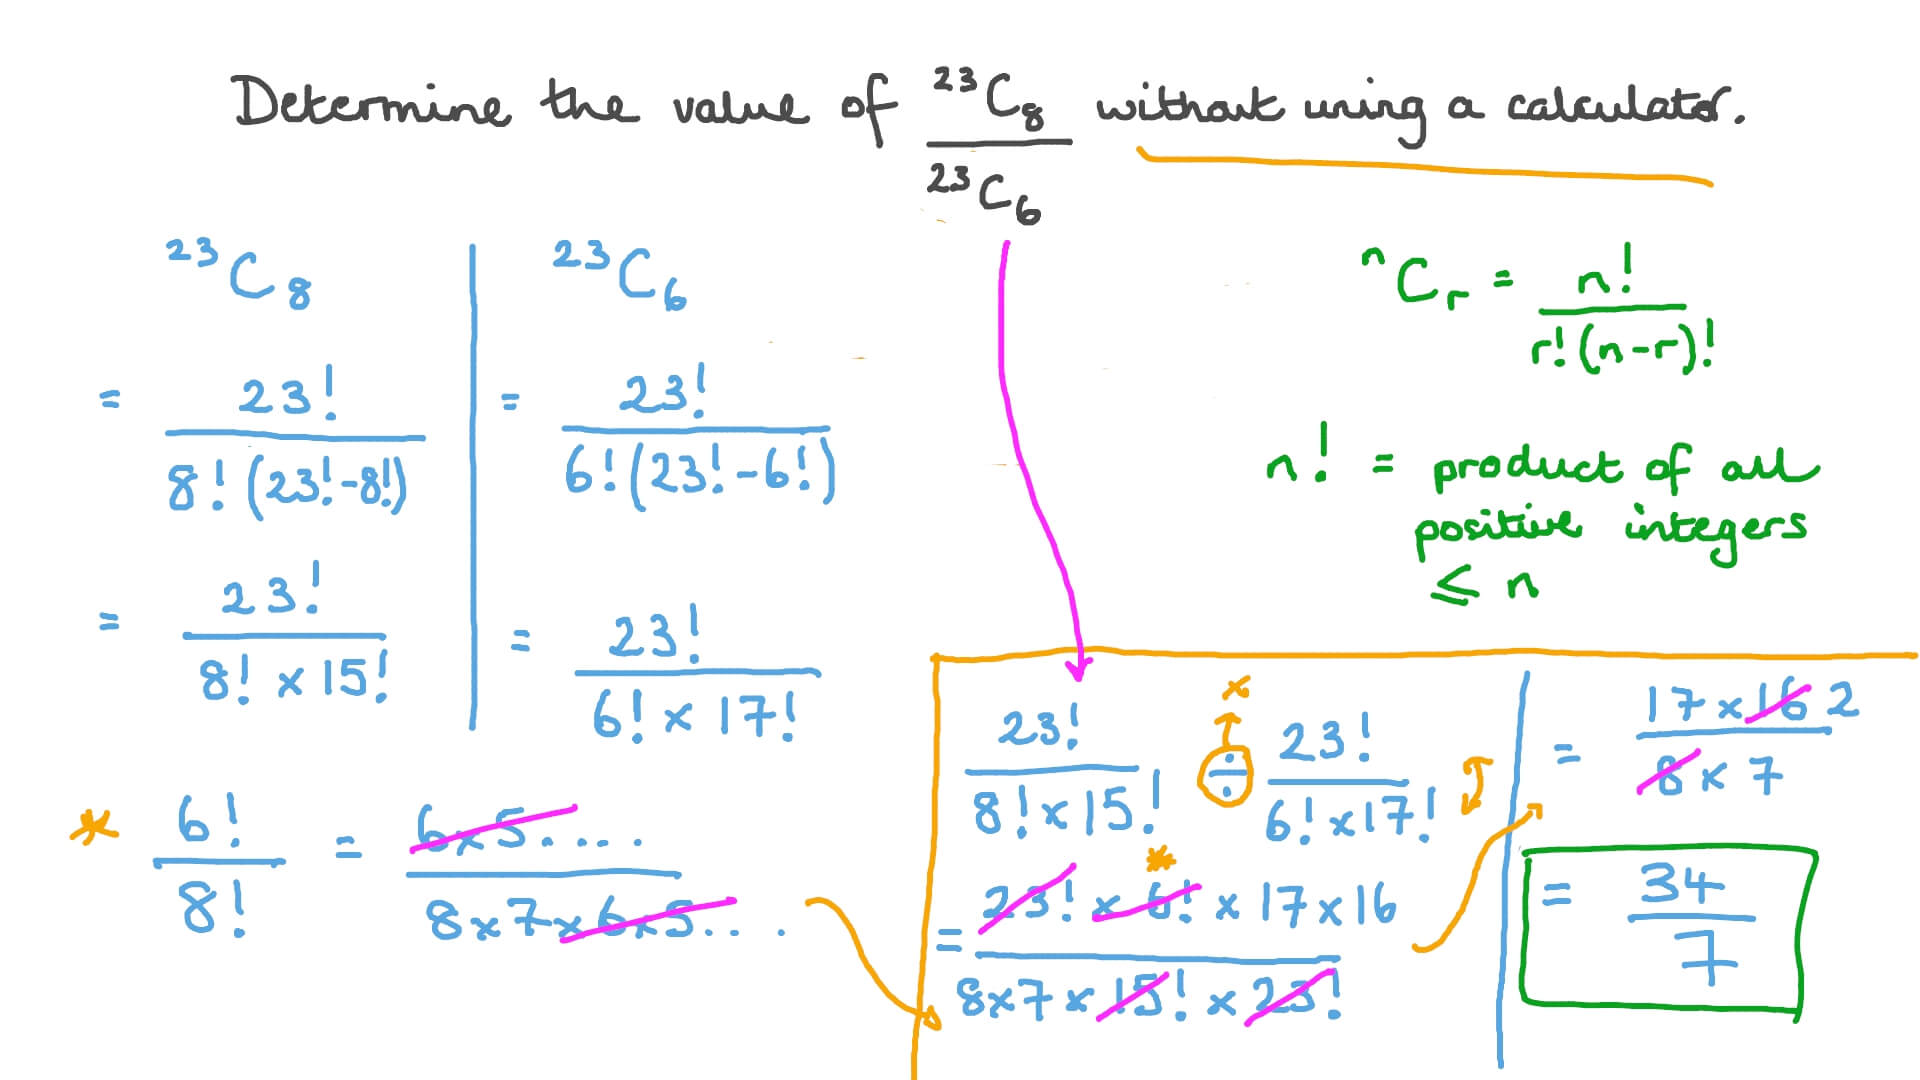 Determine the value of ²³C₈ / ²³C₆ without using a calculator.
²³C₈
= 23! / 8! (23!-8!)
= 23! / 8! × 15!
²³C₆
= 23! / 6! (23!-6!)
= 23! / 6! × 17!
ⁿCᵣ = n! / r! (n-r)!
n! = product of all
positive integers
≤ n
* 6! / 8! = 6×5.... / 8×7×6×5....
23! / 8!×15! ÷ 23! / 6!×17!
×
*
= 23! × 6! × 17×16 / 8×7 × 15! × 23!
= 17 × 16 2 / 8 × 7
= 34 / 7